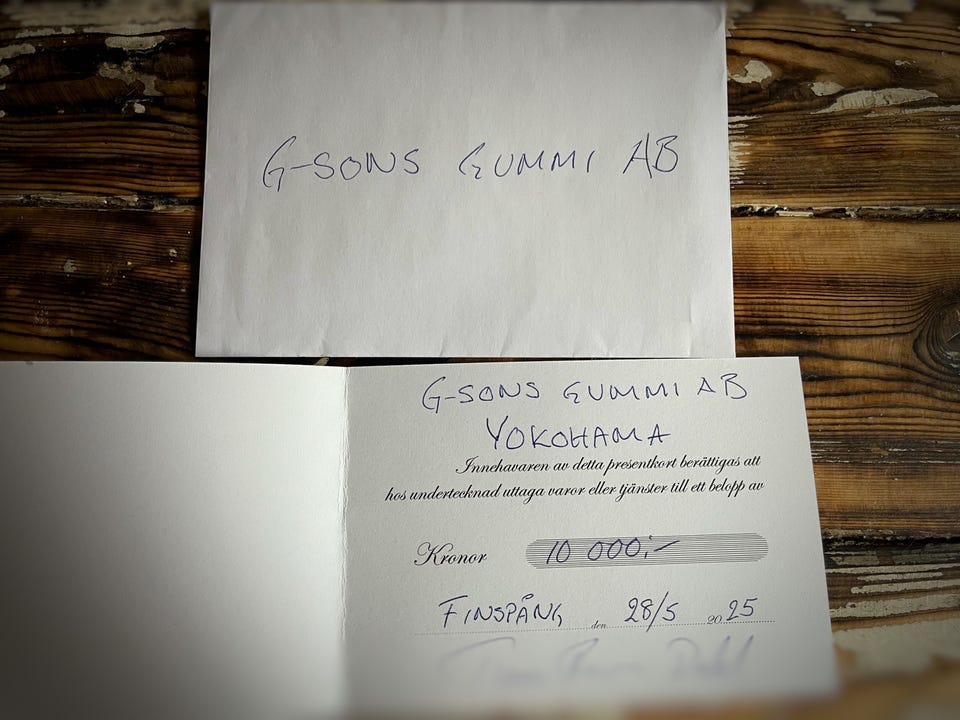 G-SONS GUMMI AB
G-SONS GUMMI AB
YOKOHAMA
Innehavaren av detta presentkort berättigas att
hos undertecknad uttaga varor eller tjänster till ett belopp av
Kronor 10 000:-
FINSPÅNG den 28/5 2025